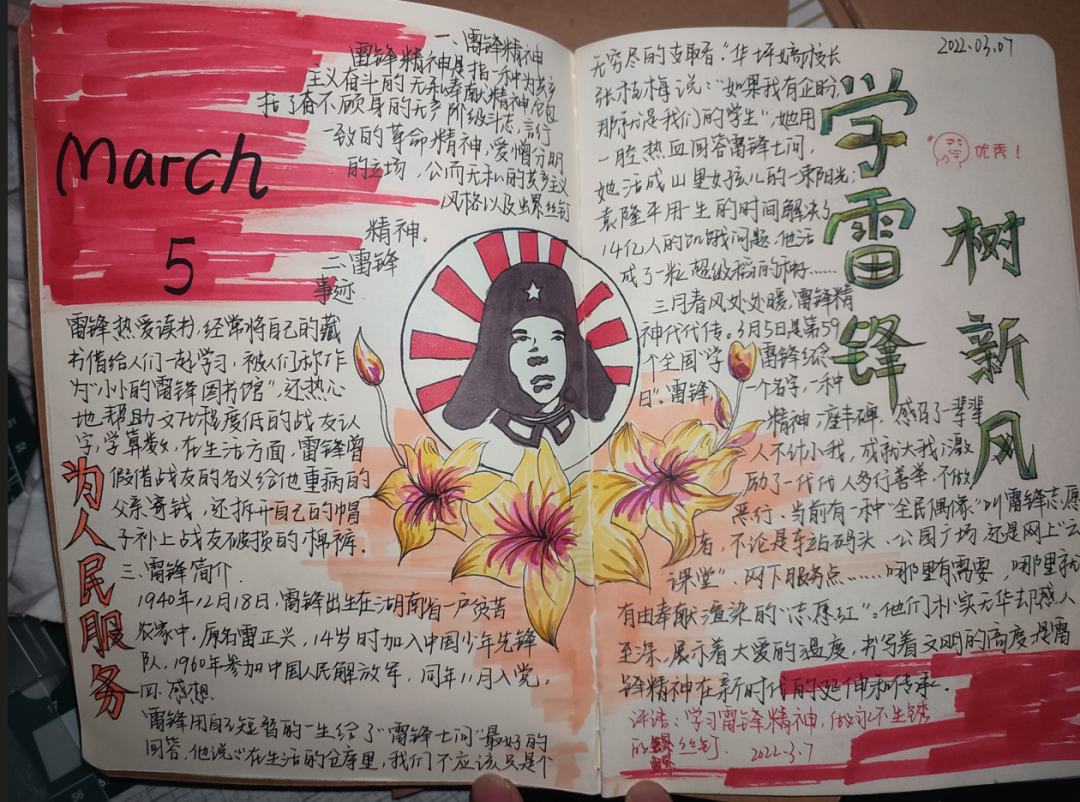 March
5
一、雷锋精神
雷锋精神是指一种为共产
主义奋斗的无私奉献精神，包
括了奋不顾身的无产阶级斗志，言行
一致的革命精神，爱憎分明
的立场，公而无私的共产主义
风格以及螺丝钉
精神。
二、雷锋
事迹
雷锋热爱读书，经常将自己的藏
书借给人们一起学习，被人们称作
为“小小的雷锋图书馆”，还热心
地帮助文化程度低的战友认
字，学算数，在生活方面，雷锋曾
假借战友的名义给他重病的
父亲寄钱，还拆开自己的帽
子补上战友破损的棉裤．
三、雷锋简介．
1940年12月18日，雷锋出生在湖南省一户贫苦
农家中，原名雷正兴，14岁时加入中国少年先锋
队，1960年参加中国人民解放军，同年11月入党，
四．感想．
雷锋用自己短暂的一生给了“雷锋七问”最好的
回答．他说：“在生活的仓库里，我们不应该只是个
为人民服务
2022.03.07
无穷尽的支取者．”华坪女高校长
张桂梅说：“如果我有企盼，
那就是我们的学生”，她用
一腔热血回答雷锋七问，
她活成山里女孩儿的一束阳光；
袁隆平用一生的时间解决了
14亿人的饥饿问题，他活
成了一粒超级稻的种子……
三月春风处处暖，雷锋精
神代代传。3月5日是第59
个全国“学雷锋纪念
日”。雷锋，一个名字，一种
精神，一座丰碑，感召了一辈辈
人不纠小我，成就大我；激
励了一代代人多行善举，不做
恶行．当前有一种“全民偶像”叫雷锋志愿
者，不论是车站码头、公园广场，还是网上“云
课堂”、网下服务点……哪里有需要，哪里就
有由奉献渲染的“志愿红”。他们朴实无华却感人
至深，展示着大爱的温度，书写着文明的高度，是雷
锋精神在新时代的延伸和传承．
学雷锋
树新风
优秀！
评语：学习雷锋精神，做永不生锈
的螺丝钉．
2022-3.7